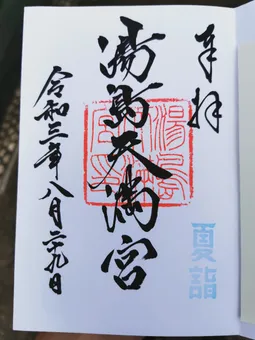 奉拝
夏詣
湯島天満宮
令和三年八月二十九日